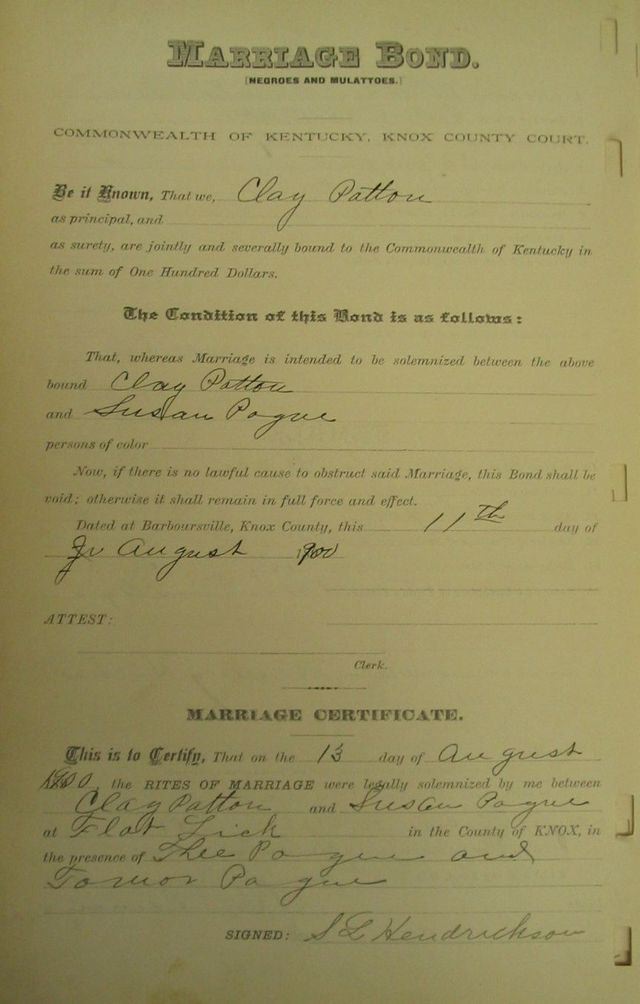 MARRIAGE BOND.
[NEGROES AND MULATTOES.]
COMMONWEALTH OF KENTUCKY, KNOX COUNTY COURT.
Be it Known, That we, Clay Patton
as principal, and
as surety, are jointly and severally bound to the Commonwealth of Kentucky in
the sum of One Hundred Dollars.
The Condition of this Bond is as follows:
That, whereas Marriage is intended to be solemnized between the above
bound Clay Patton
and Susan Pogue
persons of color
Now, if there is no lawful cause to obstruct said Marriage, this Bond shall be
void; otherwise it shall remain in full force and effect.
Dated at Barboursville, Knox County, this 11th day of
August 1900
ATTEST:
Clerk.
MARRIAGE CERTIFICATE.
This is to Certify, That on the 13 day of August
1900, the RITES OF MARRIAGE were legally solemnized by me between
Clay Patton and Susan Pogue
at Flat Lick in the County of KNOX, in
the presence of Thee Pogue and
Pogue
SIGNED: S L Hendrickson